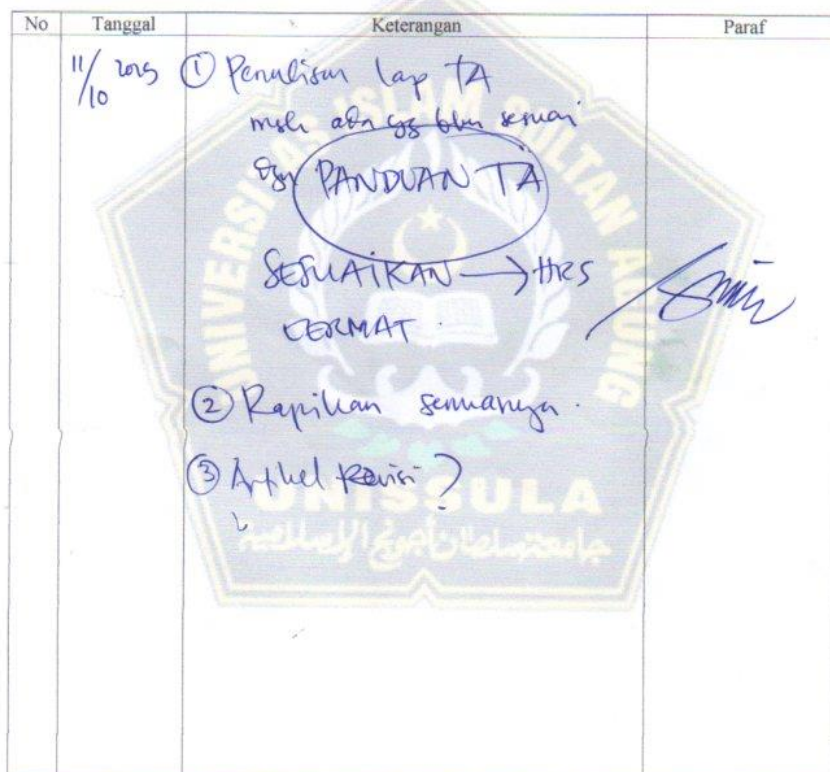 No Tanggal Keterangan Paraf
11/10 2025 ① Penulisan lap TA
msh ada yg blm sesuai
dgn PANDUAN TA
SESUAIKAN → HRS
CERMAT.
② Rapikan semuanya.
③ Artikel Revisi?
UNIVERSITAS ISLAM SULTAN AGUNG
UNISSULA
جامعتسلطان أجونج الإسلامية